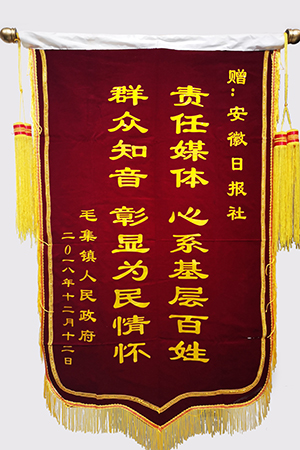 赠：安徽日报社
责任媒体 心系基层百姓
群众知音 彰显为民情怀
毛集镇人民政府
二〇一八年十二月十二日